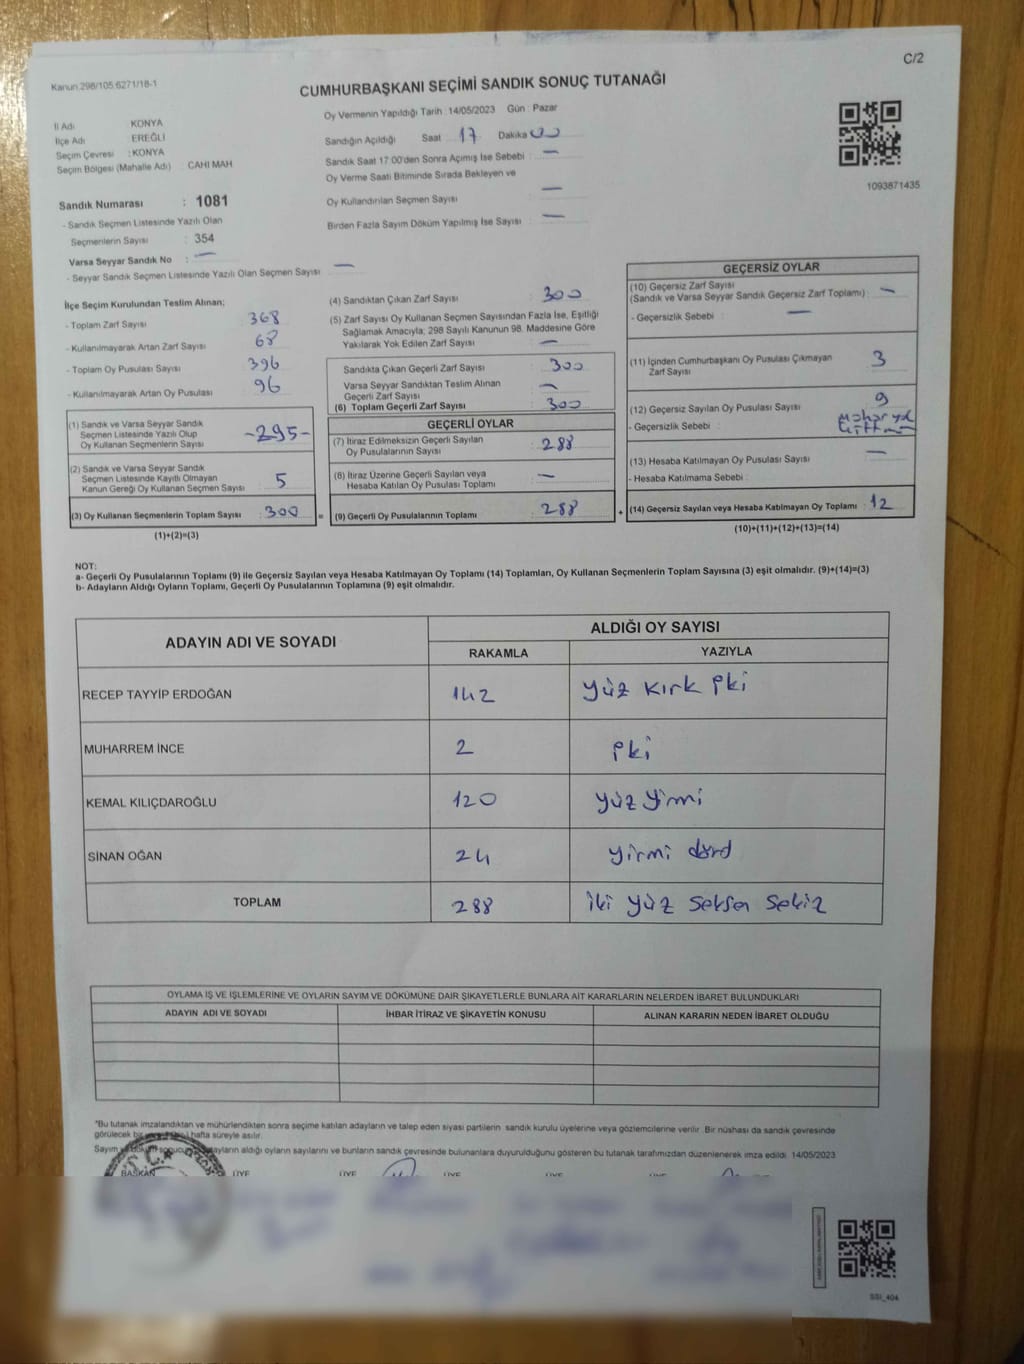 C/2
Kanun 298/105,6271/18-1
CUMHURBAŞKANI SEÇİMİ SANDIK SONUÇ TUTANAĞI
İl Adı KONYA
İlçe Adı EREĞLİ
Seçim Çevresi : KONYA
Seçim Bölgesi (Mahalle Adı) CAHI MAH
Sandık Numarası : 1081
- Sandık Seçmen Listesinde Yazılı Olan
Seçmenlerin Sayısı : 354
Varsa Seyyar Sandık No : —
- Seyyar Sandık Seçmen Listesinde Yazılı Olan Seçmen Sayısı —
Oy Vermenin Yapıldığı Tarih : 14/05/2023 Gün : Pazar
Sandığın Açıldığı Saat 17 Dakika 00
Sandık Saat 17:00'den Sonra Açımış İse Sebebi : —
Oy Verme Saati Bitiminde Sırada Bekleyen ve
Oy Kullandırılan Seçmen Sayısı : —
Birden Fazla Sayım Döküm Yapılmış İse Sayısı : —
1093871435
İlçe Seçim Kurulundan Teslim Alınan;
- Toplam Zarf Sayısı 368
- Kullanılmayarak Artan Zarf Sayısı 68
- Toplam Oy Pusulası Sayısı 396
- Kullanılmayarak Artan Oy Pusulası 96
(1) Sandık ve Varsa Seyyar Sandık
Seçmen Listesinde Yazılı Olup
Oy Kullanan Seçmenlerin Sayısı -295-
(2) Sandık ve Varsa Seyyar Sandık
Seçmen Listesinde Kayıtlı Olmayan
Kanun Gereği Oy Kullanan Seçmen Sayısı 5
(3) Oy Kullanan Seçmenlerin Toplam Sayısı : 300 =
(1)+(2)=(3)
(4) Sandıktan Çıkan Zarf Sayısı : 300
(5) Zarf Sayısı Oy Kullanan Seçmen Sayısından Fazla İse, Eşitliği
Sağlamak Amacıyla; 298 Sayılı Kanunun 98. Maddesine Göre
Yakılarak Yok Edilen Zarf Sayısı : —
Sandıkta Çıkan Geçerli Zarf Sayısı : 300
Varsa Seyyar Sandıktan Teslim Alınan
Geçerli Zarf Sayısı : —
(6) Toplam Geçerli Zarf Sayısı : 300
GEÇERLİ OYLAR
(7) İtiraz Edilmeksizin Geçerli Sayılan
Oy Pusulalarının Sayısı : 288
(8) İtiraz Üzerine Geçerli Sayılan veya
Hesaba Katılan Oy Pusulası Toplamı : —
(9) Geçerli Oy Pusulalarının Toplamı : 288 +
GEÇERSİZ OYLAR
(10) Geçersiz Zarf Sayısı
(Sandık ve Varsa Seyyar Sandık Geçersiz Zarf Toplamı) : —
- Geçersizlik Sebebi : —
(11) İçinden Cumhurbaşkanı Oy Pusulası Çıkmayan
Zarf Sayısı 3
(12) Geçersiz Sayılan Oy Pusulası Sayısı : 9
- Geçersizlik Sebebi :
(13) Hesaba Katılmayan Oy Pusulası Sayısı : —
- Hesaba Katılmama Sebebi :
(14) Geçersiz Sayılan veya Hesaba Katılmayan Oy Toplamı : 12
(10)+(11)+(12)+(13)=(14)
NOT:
a- Geçerli Oy Pusulalarının Toplamı (9) ile Geçersiz Sayılan veya Hesaba Katılmayan Oy Toplamı (14) Toplamları, Oy Kullanan Seçmenlerin Toplam Sayısına (3) eşit olmalıdır. (9)+(14)=(3)
b- Adayların Aldığı Oyların Toplamı, Geçerli Oy Pusulalarının Toplamına (9) eşit olmalıdır.
ADAYIN ADI VE SOYADI ALDIĞI OY SAYISI
RAKAMLA YAZIYLA
RECEP TAYYİP ERDOĞAN 142 yüz kırk iki
MUHARREM İNCE 2 iki
KEMAL KILIÇDAROĞLU 120 yüz yirmi
SİNAN OĞAN 24 yirmi dörd
TOPLAM 288 iki yüz seksen sekiz
OYLAMA İŞ VE İŞLEMLERİNE VE OYLARIN SAYIM VE DÖKÜMÜNE DAİR ŞİKAYETLERLE BUNLARA AİT KARARLARIN NELERDEN İBARET BULUNDUKLARI
ADAYIN ADI VE SOYADI İHBAR İTİRAZ VE ŞİKAYETİN KONUSU ALINAN KARARIN NEDEN İBARET OLDUĞU
"Bu tutanak imzalandıktan ve mühürlendikten sonra seçime katılan adayların ve talep eden siyasi partilerin sandık kurulu üyelerine veya gözlemcilerine verilir. Bir nüshası da sandık çevresinde
görülecek bir hafta süreyle asılır.
Sayım ve döküm adayların aldığı oyların sayılarını ve bunların sandık çevresinde bulunanlara duyurulduğunu gösteren bu tutanak tarafımızdan düzenlenerek imza edildi. 14/05/2023
BAŞKAN ÜYE ÜYE ÜYE ÜYE ÜYE
T.C.
SSI_404